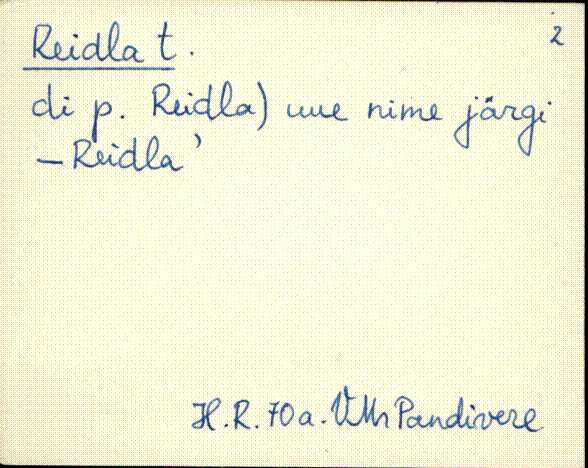 Reidla t.
2
di p. Reidla) uue nime järgi
– Reidla'
H.R. 70a. VMr Pandivere